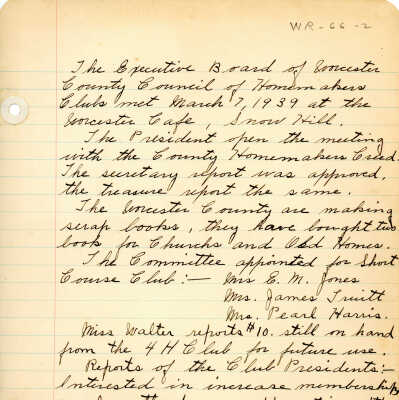 WR-66-2
The Executive Board of Worcester
County Council of Homemakers
Clubs met March 7, 1939 at the
Worcester Cafe, Snow Hill.
The President open the meeting
with the County Homemakers Creed.
The secretary report was approved,
the treasure report the same.
The Worcester County are making
scrap books, they have bought two
book for Churchs and Old Homes.
The Committee appointed for Short
Course Club:— Mrs E. M. Jones
Mrs. James Truitt
Mrs. Pearl Harris.
Miss Walter reports #10. still on hand
from the 4 H Club for future use.
Reports of the Club Presidents:-
Interested in increase membership